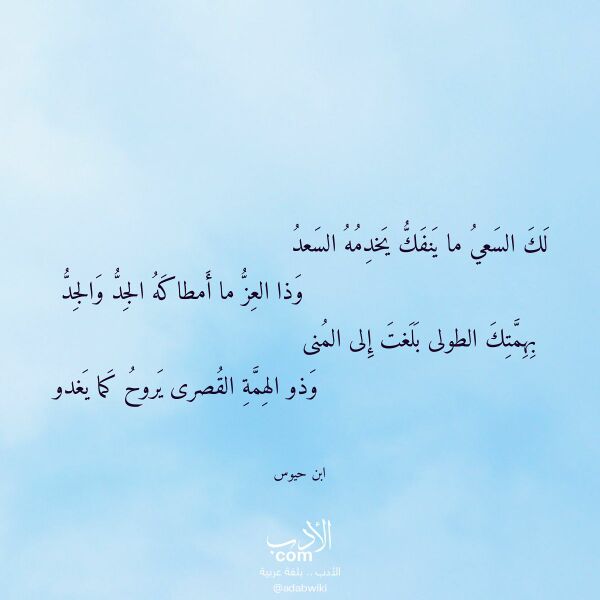 لَكَ السَعيُ ما يَنفَكُّ يَخدِمُهُ السَعدُ
وَذا العِزُّ ما أَمطاكَهُ الجِدُّ وَالجِدُّ
بِهِمَّتِكَ الطولى بَلَغتَ إِلى المُنى
وَذو الهِمَّةِ القُصرى يَروحُ كَما يَغدو
ابن حيوس
الأدب
com
الأدب .. بلغة عربية
@adabwiki